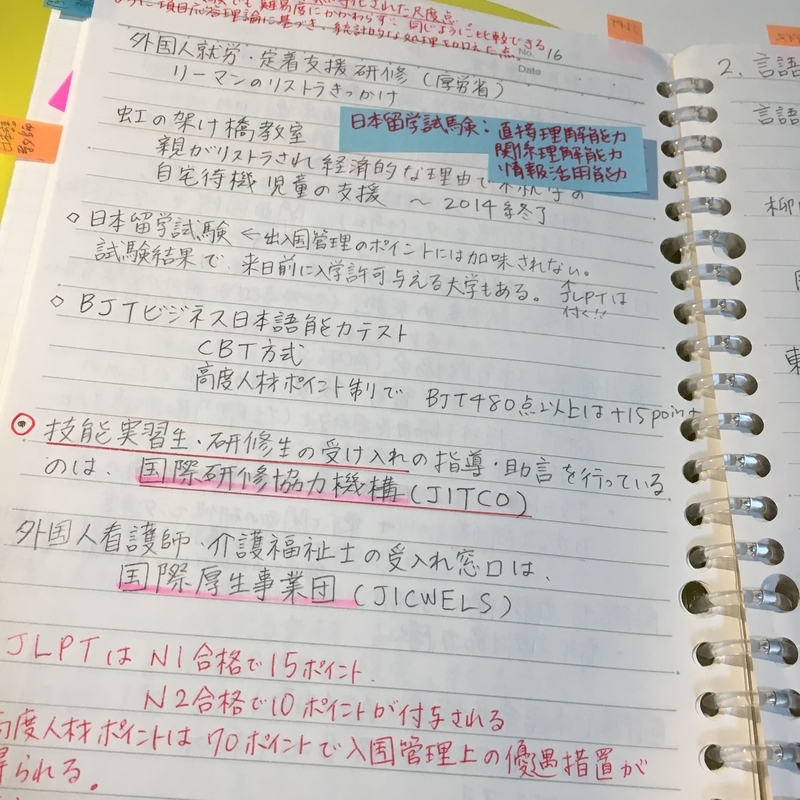 難易度にかかわらず、同じように比較できる
ように項目応答理論に基づき、統計的な処理を
No. 16
Date
外国人就労・定着支援研修（厚労省）
リーマンのリストラきっかけ
虹の架け橋教室
日本留学試験：直接理解能力
関係理解能力
情報活用能力
親がリストラされ経済的な理由で
自宅待機児童の支援 ～2014年終了
◇日本留学試験 ←出入国管理のポイントには加味されない。
試験結果で、来日前に入学許可与える大学もある。
↑JLPTは
付く!!
◇BJTビジネス日本語能力テスト
CBT方式
高度人材ポイント制で BJT480点以上は+15point
技能実習生・研修生の受け入れの指導・助言を行っている
のは、国際研修協力機構(JITCO)
外国人看護師・介護福祉士の受入れ窓口は、
国際厚生事業団(JICWELS)
JLPTはN1合格で15ポイント.
N2合格で10ポイントが付与される
高度人材ポイントは70ポイントで入国管理上の優遇措置が
得られる。
2. 言語
言語